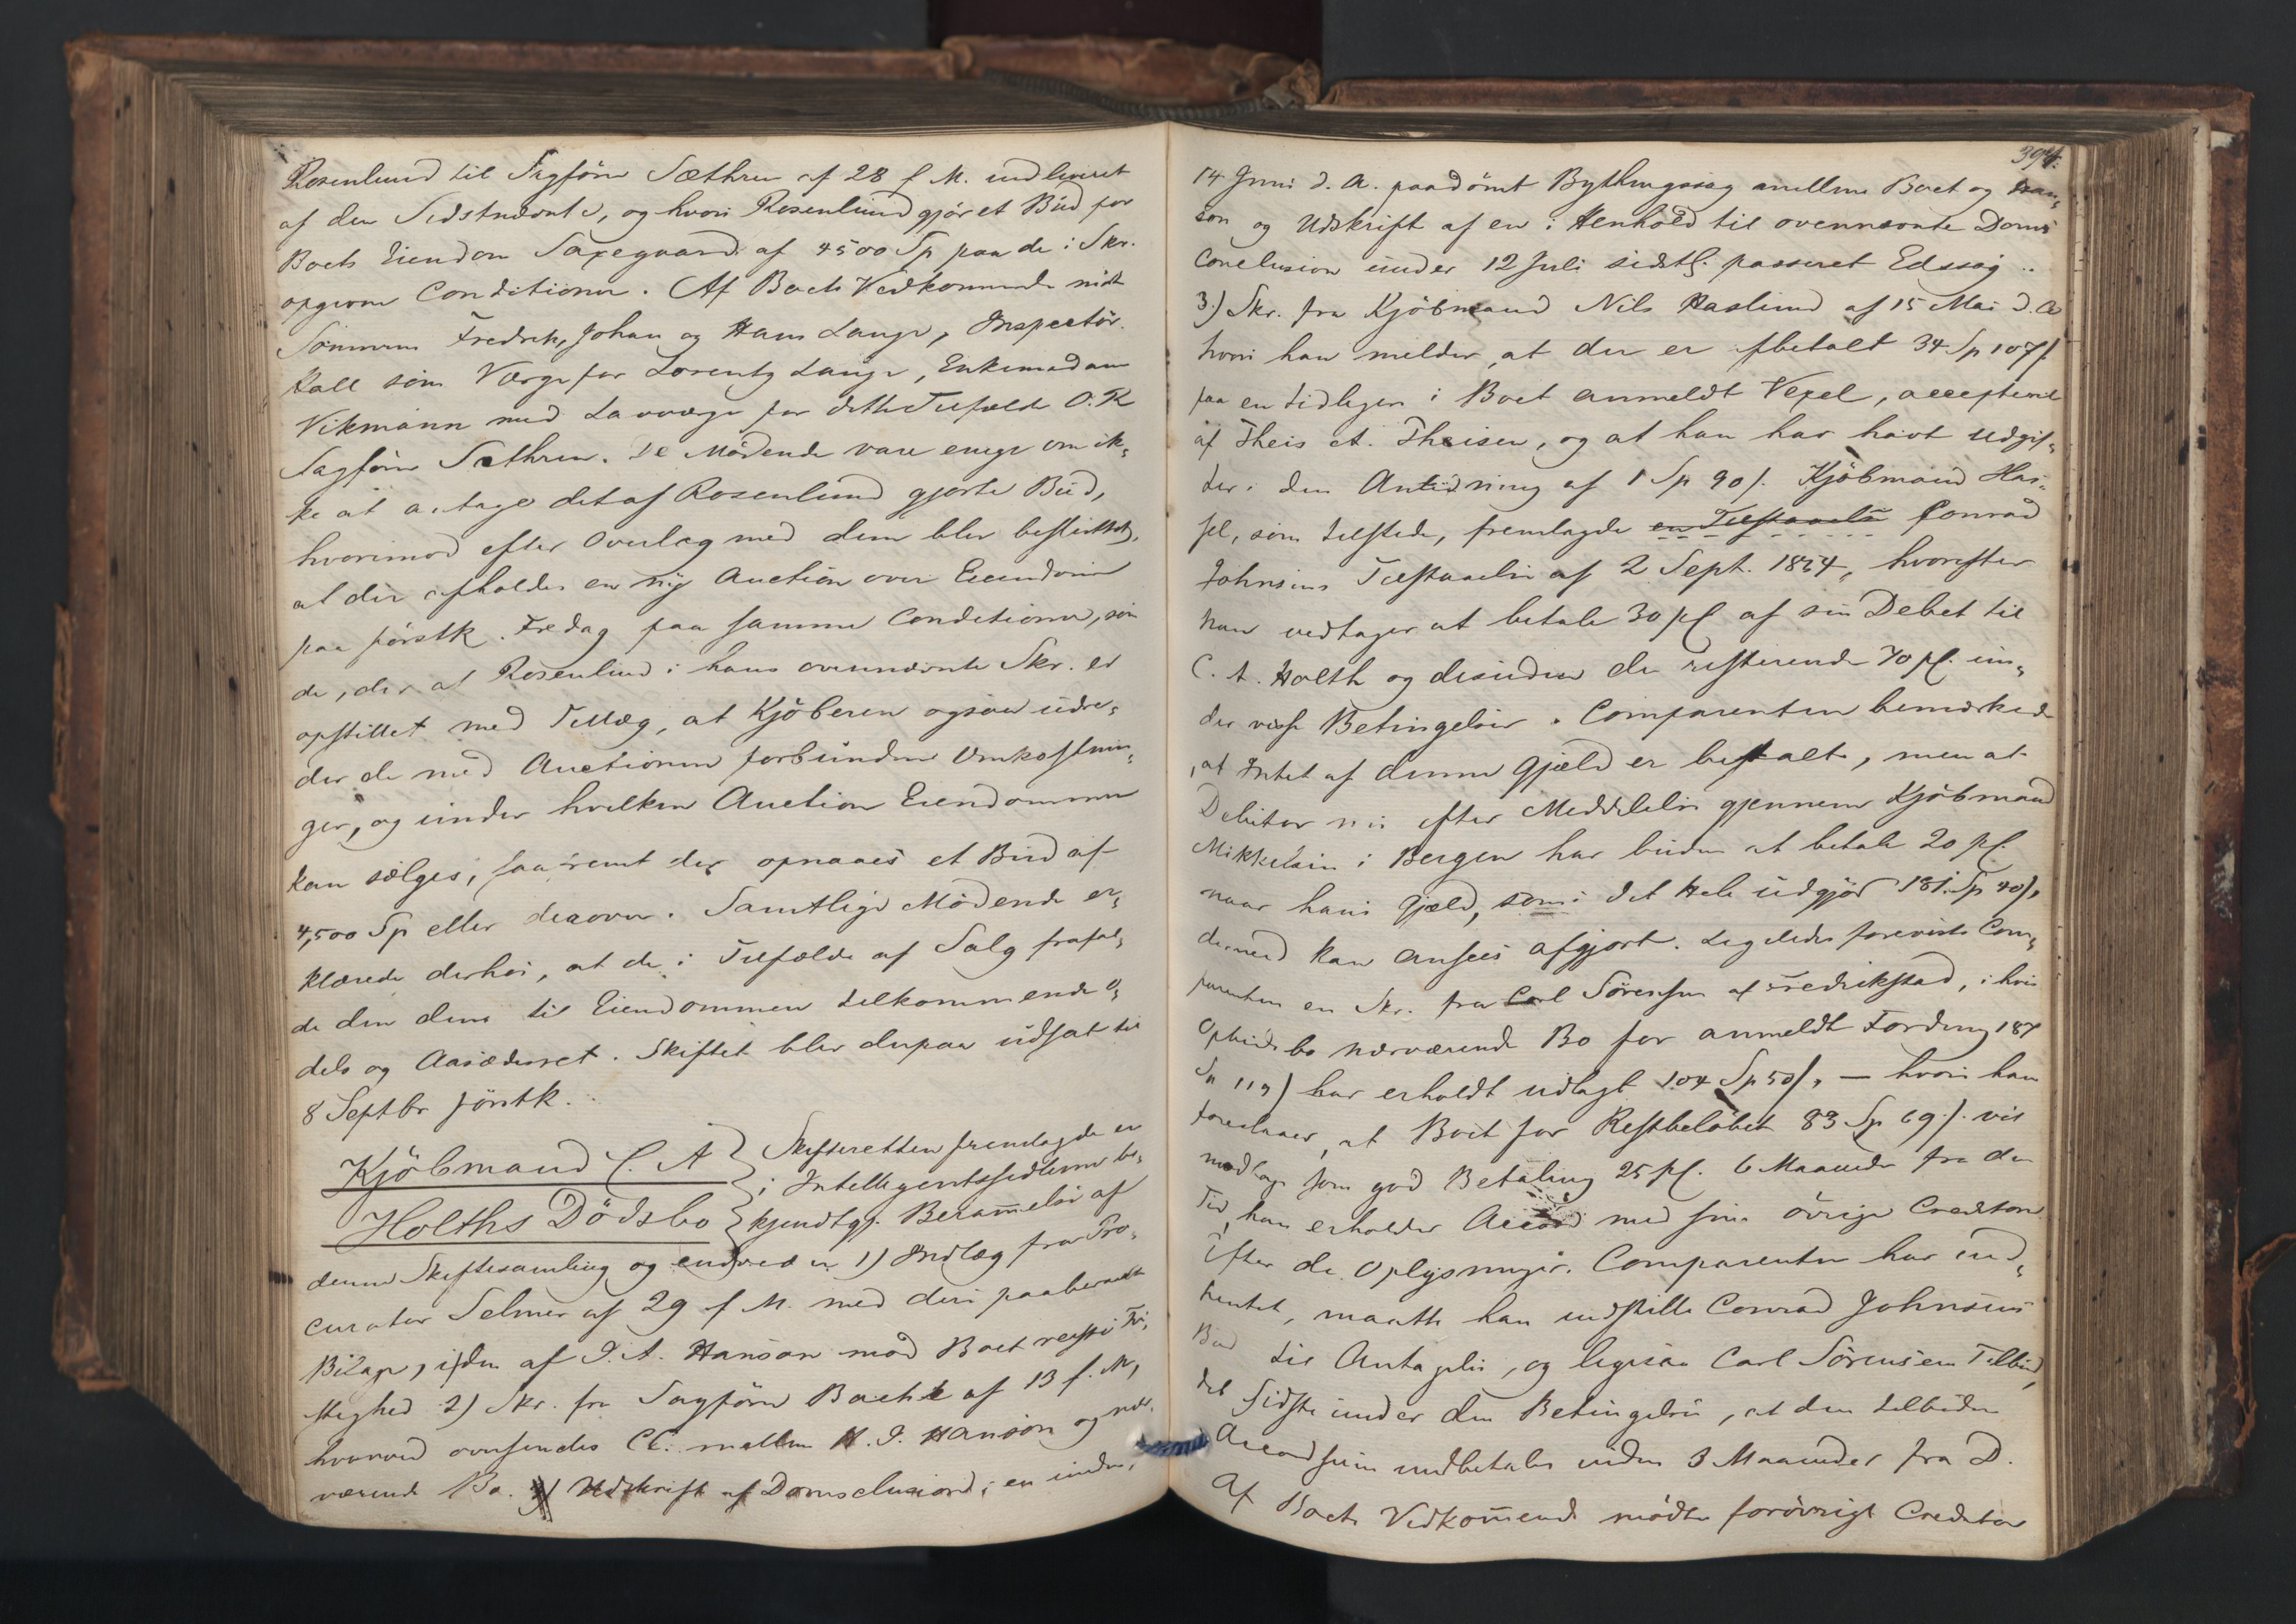 Rosenlund til Sagförer Sæthren af 28 f. M. indleveret
af den Sidstnævnte, og hvori Rosenlund gjör et Bud for
Boets Eiendom Saxegaard af 4500 Sp paa de i Skr.
opgivne Conditioner. Af Boets Vedkommende mödte
Sönnerne Fredrik, Johan og Hans Lange, Inspectör
Kall som Værge for Lorentz Lange, Enkemadam
Vikmann med Lavværge for dette Tilfælde O.R
Sagförer Sæthren. De Mödende vare enige om ik„
ke at antage det af Rosenlund gjorte Bud,
hvorimod efter Overlæg med dem blev besluttet,
at der afholdes en ny Auction over Eiendommen
paa förstk. Fredag paa samme Conditioner, som
de, der af Rosenlund i hans ovennævnte Skr. er
opstillet med Tillæg, at Kjöberen ogsaa udre„
der de med Auctionen forbundne Omkostnin„
ger, og under hvilken Auction Eiendommen
kan sælges, saafremt der opnaaes et Bud af
4,500 Sp eller derover. Samtlige Mödende er„
klærede derhos, at de i Tilfælde af Salg frafal„
de den dem til Eiendommen tilkommende O„
dels og Aasædesret. Skiftet blev derpaa udsat til
8 Septbr förstk.
Kjöbmand C. A
Holths Dödsbo
Skifteretten fremlagde en
i Intelligentssedlerne be„
kjendtgj. Berammelse af
denne Skiftesamling og 1) Indlæg fra Pro„
curator Selmer af 29 f. M. med deri paaberaabte
Bilage, af I. A. Hanson mod Boet
2) Skr. fra Sagförer Bache af 13 f. M,
hvorved oversendes mellem H. I. Hanson og nær„
værende Bo. Udskrift af i en under
394.
14 Juni d. A. paadömt mellem Boet og Han„
son og Udskrift af en i Henhold til ovennævnte Doms
Conclusion under 12 Juli sidstl. passeret Edssag
3.) Skr. fra Kjöbmand Nils Haslund af 15 Mai d. A
hvori han melder, at der er afbetalt 34 Sp 107 s.
paa en tidligere i Boet anmeldt Vexel, accepteret
af Theis A. Theisen, og at han har havt Udgif„
ter i den Anledning af 1 Sp 90 s. Kjöbmand Has„
sel, som tilstede, fremlagde en Tilstaaelse Conrad
Johnsens Tilstaaelse af 2 Sept. 1864, hvorefter
han vedtager at betale 30 pC af sin Debet til
C. A. Holth og desuden de resterende 70 pC. un„
der visse Betingelser. Comparenten bemærkede
, at Intet af denne Gjæld er betalt, men at
Debitor nu efter Meddelelse gjennem Kjöbmand
Mikkelsen i Bergen har buden at betale 20 pC.
naar hans Gjæld, som i det Hele udgjör 181 Sp 40 s,
dermed kan ansees afgjort. Ligeledes foreviste Com„
parenten en Skr. fra Carl Sörensen af Fredrikstad, i hvis
Opbudsbo nærværende Bo for anmeldt Fordring 187
Sp 119 s har erholdt udlagt 104 Sp 50 s, — hvori han
foreslaaer, at Boet for Restbelöbet 83 Sp 69 s. vil
modtage som god Betaling 25 pC. 6 Maaneder fra den
Tid, han erholder Accord med sine övrige Creditorer.
Efter de Oplysninger, Comparenten har ind„
hentet, maatte han indstille Conrad Johnsens
Bud til Antagelse, og ligesaa Carl Sörensens Tilbud,
det Sidste under den Betingelse, at den tilbudne
Accordsum indbetales inden 3 Maaneder fra D.
Af Boets Vedkommende mödte forövrigt Creditor